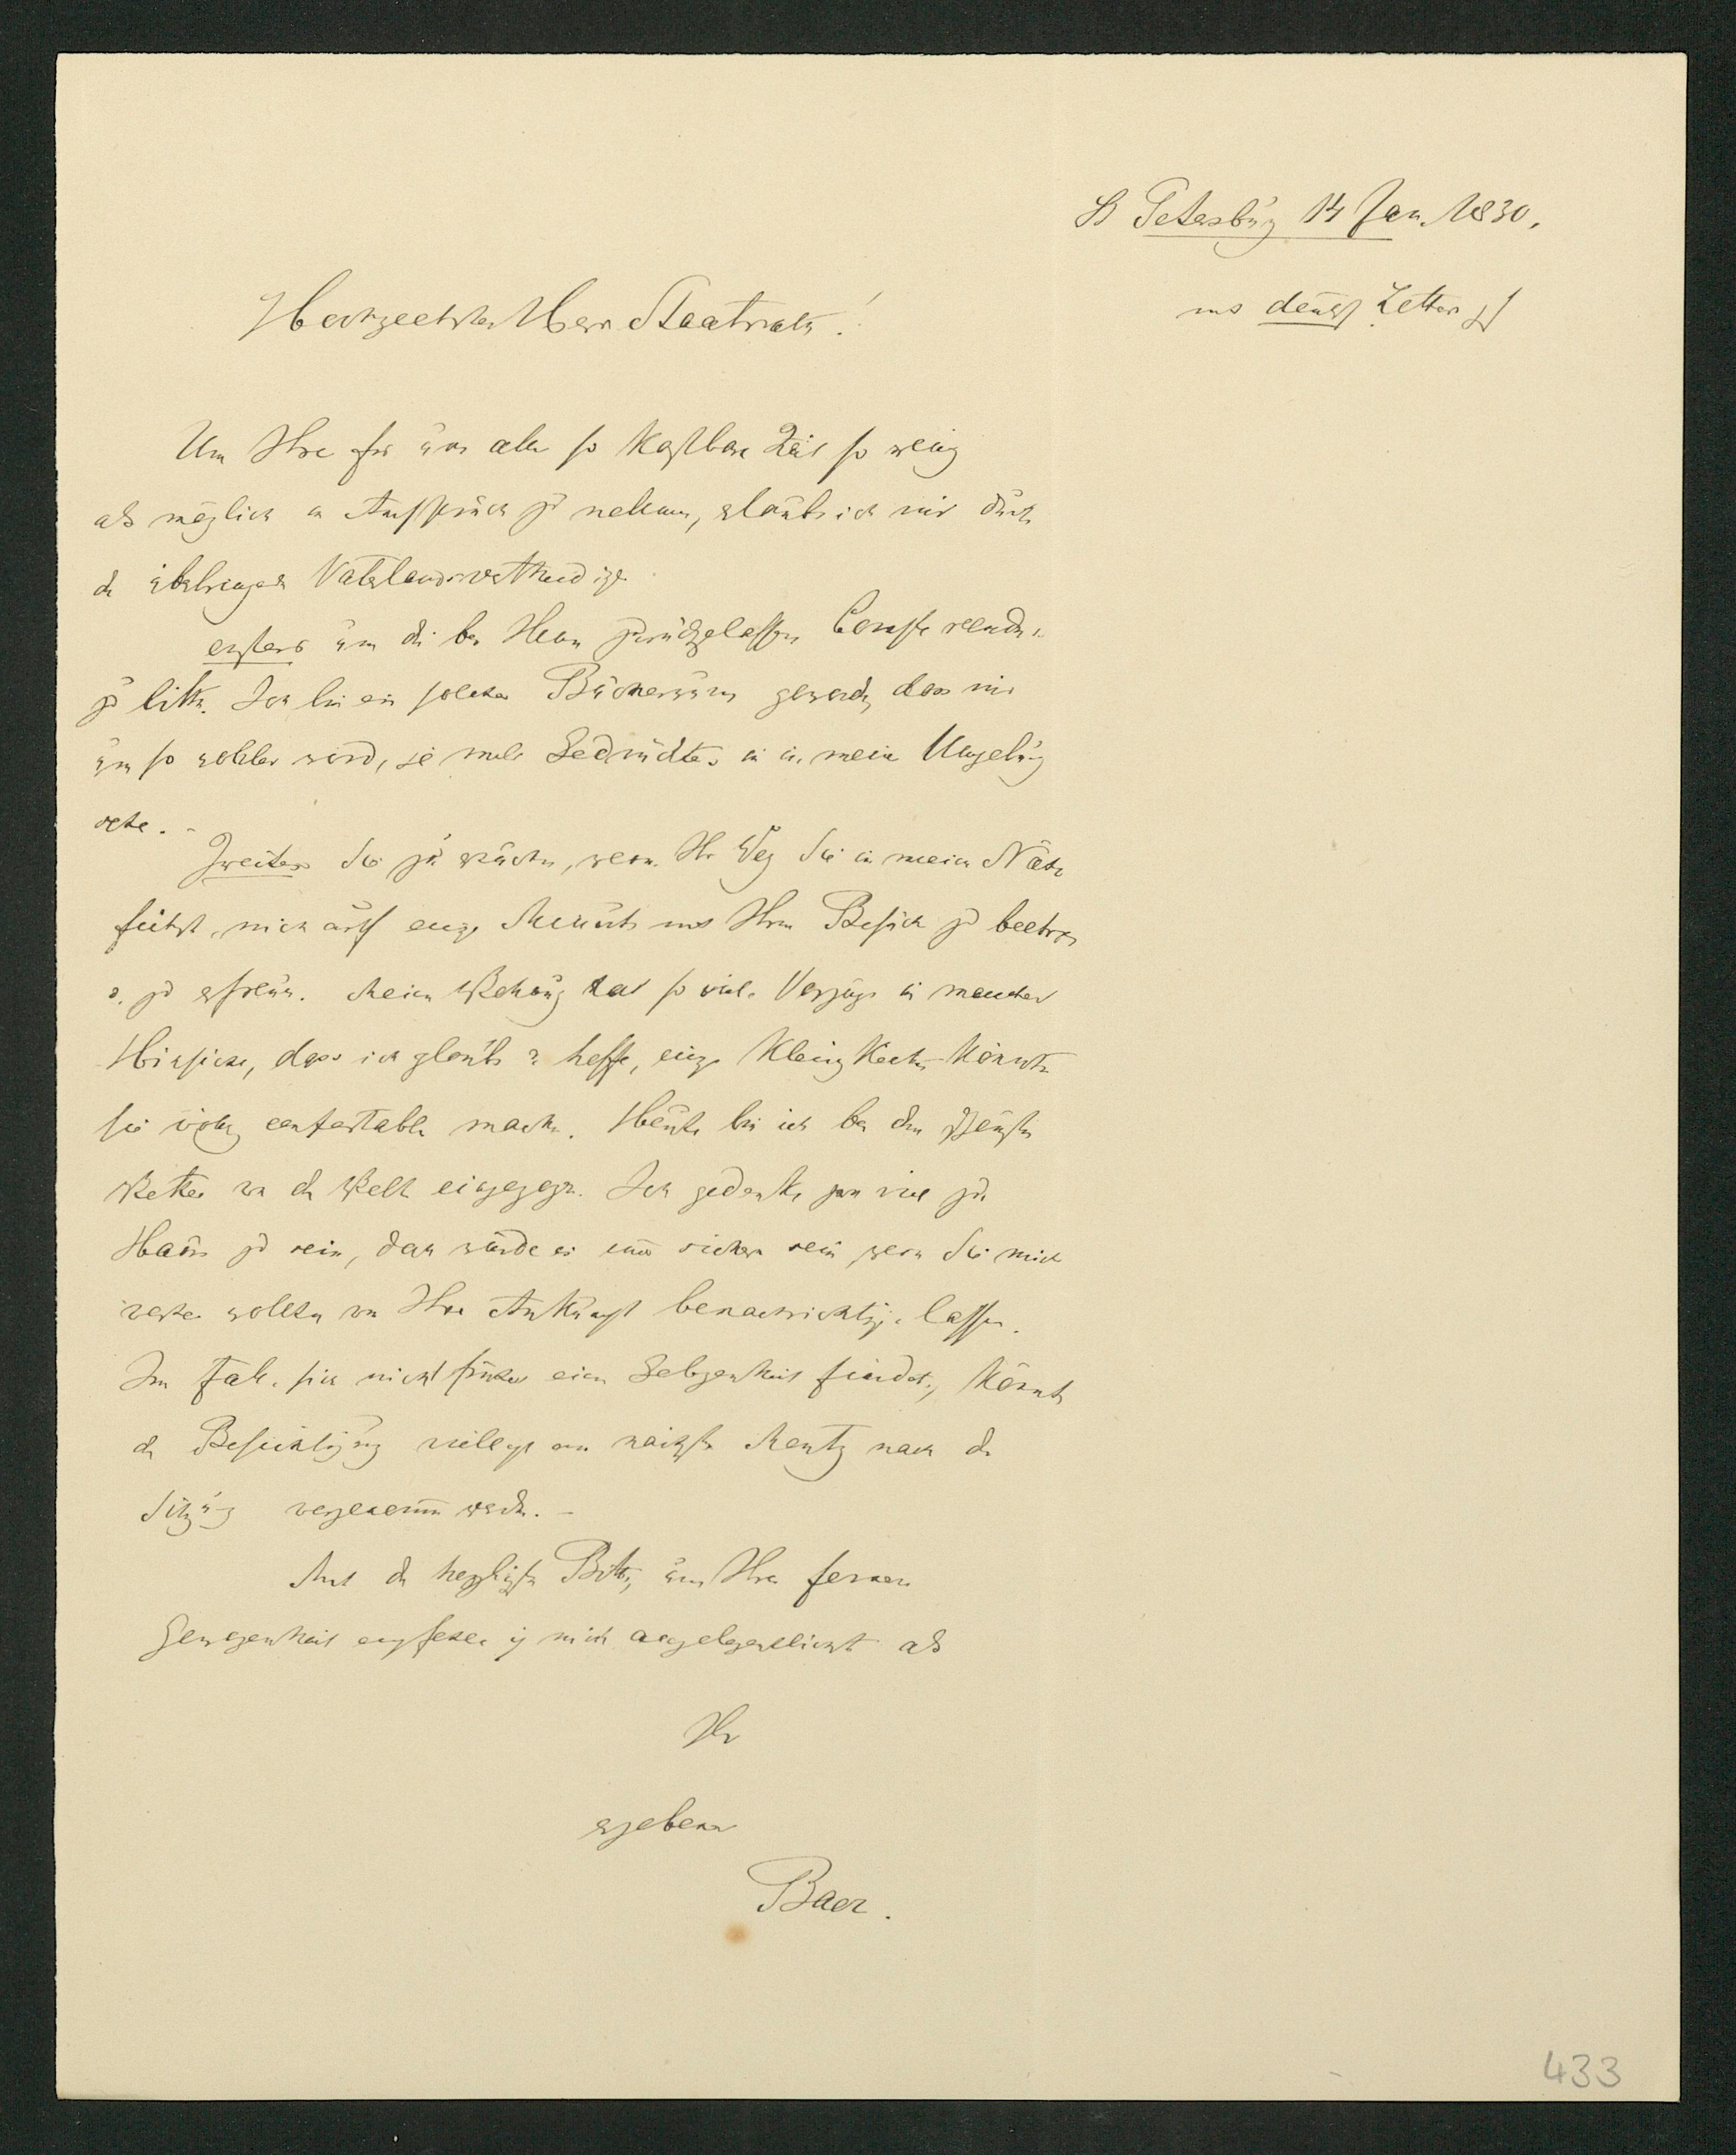 St Petersburg 14 Jan. 1830.
mit deutsch Lettern
Hochgeehrter Herr Staatsrath!
Um Ihre für uns alle so kostbare Zeit so wenig
als möglich in Anspruch zu nehmen, erlaube ich mir durch
den überbringenden Vaterlandsvertheidiger
erstens um die bei Ihnen zurückgelassenen
zu bitten. Ich bin ein solcher Bücherwurm geworden, dass mir
um so wohler wird, je mehr Gedrucktes ich in meiner Umgebung
sehe. -
Zweitens Sie zu ersuchen, wenn Ihr Weg Sie in meine Nähe
führt, mich auf einige Minuten mit Ihrem Besuch zu beehren
u. zu erfreuen. Meine Wohnung hat so viele Vorzüge in mancher
Hinsicht, dass ich glaube u. hoffe, einige Kleinigkeiten könnten
sie völlig confortable machen. Heute bin ich bei dem
Wetter von der Welt eingezogen. Ich gedenke zwar viel zu
Haus zu sein, doch würde es immer sicherer sein wenn Sie mich
vorher wollten von Ihrer Ankunft benachrichtigen lassen.
Im Falle sich nicht früher eine Gelegenheit findet, könnte
die Besichtigung vielleicht am nächsten Montag nach der
Sitzung vorgenommen werden. -
Mit der herzlichsten Bitte, um Ihre fernere
Gewogenheit empfehle ich mich angelegentlichst als
Ihr
ergebener
Baer.
433